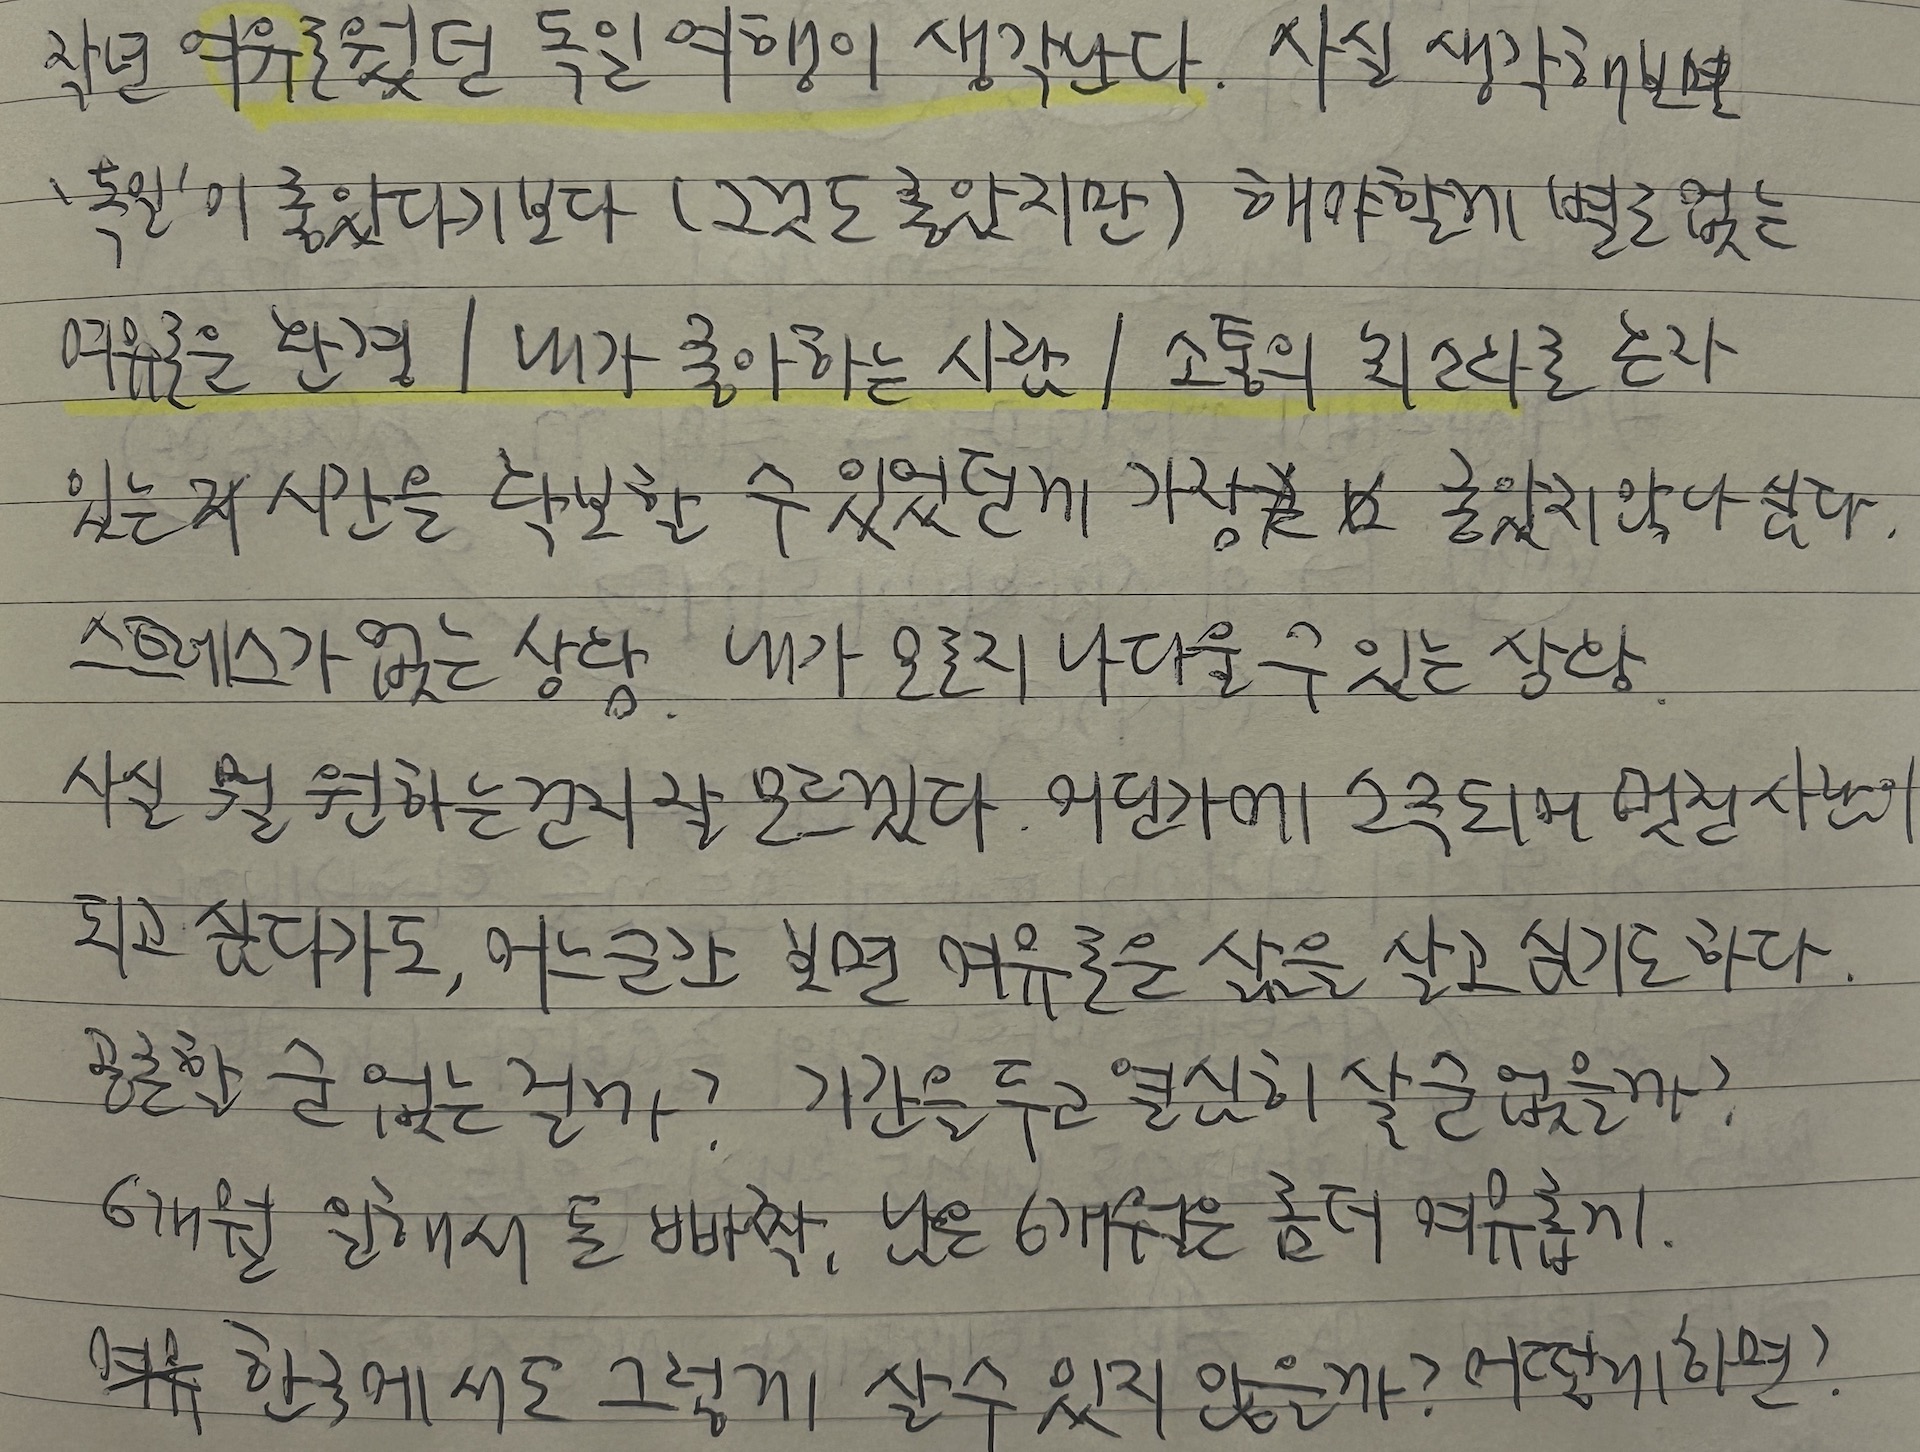 작년 여유로웠던 독일 여행이 생각난다. 사실 생각해보면
'독일'이 좋았다기보다 (그것도 좋았지만) 해야할게 별로 없는
여유로운 환경 / 내가 좋아하는 사람 / 소통의 최소화로 혼자
있는 시간을 확보할 수 있었던게 가장 좋았지 않나 싶다.
스트레스가 없는 상황. 내가 오로지 나다울 수 있는 상황.
사실 뭘 원하는건지 잘 모르겠다. 어딘가에 소속되어 멋진 사람이
되고 싶다가도, 어느순간 보면 여유로운 삶을 살고 싶기도 하다.
공존할 순 없는 걸까? 기간을 두고 열심히 살 순 없을까?
6개월 원해서 돈 빠짝, 남은 6개월은 좀더 여유롭게.
여유 한국에서도 그렇게 살 수 있지 않을까? 어떻게하면?